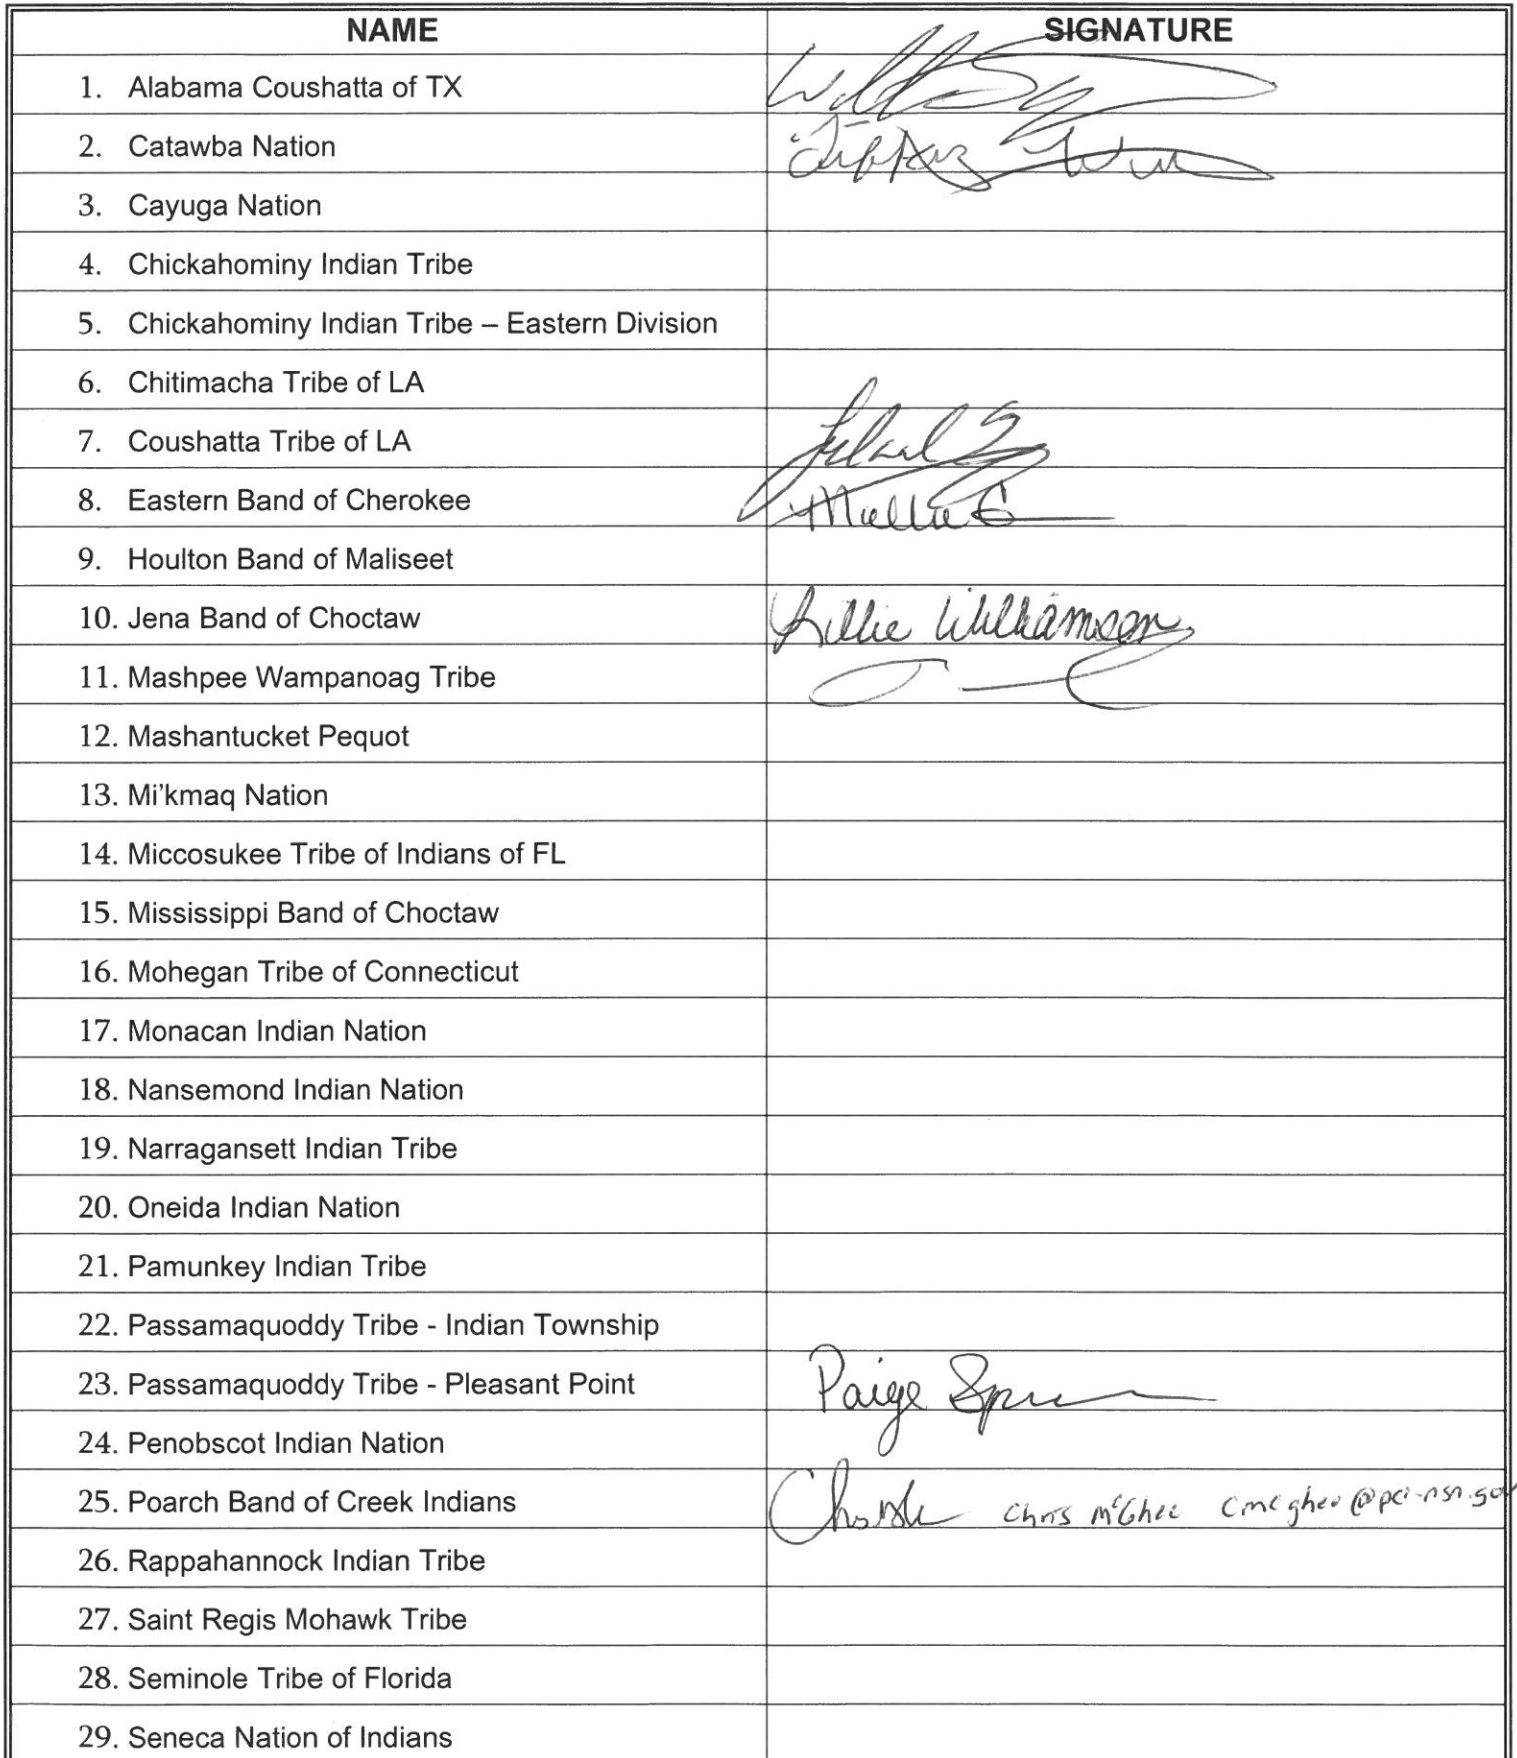 NAME SIGNATURE
1. Alabama Coushatta of TX
2. Catawba Nation
3. Cayuga Nation
4. Chickahominy Indian Tribe
5. Chickahominy Indian Tribe – Eastern Division
6. Chitimacha Tribe of LA
7. Coushatta Tribe of LA
8. Eastern Band of Cherokee
9. Houlton Band of Maliseet
10. Jena Band of Choctaw Lillie Williamson
11. Mashpee Wampanoag Tribe
12. Mashantucket Pequot
13. Mi'kmaq Nation
14. Miccosukee Tribe of Indians of FL
15. Mississippi Band of Choctaw
16. Mohegan Tribe of Connecticut
17. Monacan Indian Nation
18. Nansemond Indian Nation
19. Narragansett Indian Tribe
20. Oneida Indian Nation
21. Pamunkey Indian Tribe
22. Passamaquoddy Tribe - Indian Township
23. Passamaquoddy Tribe - Pleasant Point Paige
24. Penobscot Indian Nation
25. Poarch Band of Creek Indians Chris McGhee cmcghee@pci-nsn.gov
26. Rappahannock Indian Tribe
27. Saint Regis Mohawk Tribe
28. Seminole Tribe of Florida
29. Seneca Nation of Indians